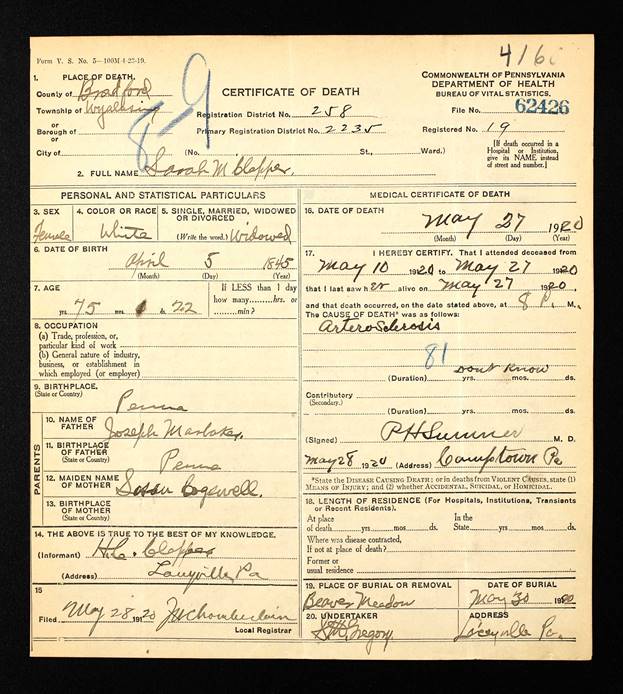 Form V. S. No. 5—100M 4-23-19.
416
1. PLACE OF DEATH.
County of Bradford
Township of Wyalusing
or
Borough of
or
City of
8-9
CERTIFICATE OF DEATH
Registration District No. 258
Primary Registration District No. 2235
(No. St., Ward.)
COMMONWEALTH OF PENNSYLVANIA
DEPARTMENT OF HEALTH
BUREAU OF VITAL STATISTICS.
File No. 62426
Registered No. 19
[If death occurred in a
Hospital or Institution,
give its NAME instead
of street and number.]
2. FULL NAME Sarah M Clapper.
PERSONAL AND STATISTICAL PARTICULARS
3. SEX
Female
4. COLOR OR RACE
White
5. SINGLE, MARRIED, WIDOWED
OR DIVORCED
(Write the word.) Widowed
6. DATE OF BIRTH
April 5 1845
(Month) (Day) (Year)
7. AGE
75 yrs. 1 mos. 22 ds.
If LESS than 1 day
how many........hrs. or
........min.?
8. OCCUPATION
(a) Trade, profession, or,
particular kind of work
(b) General nature of industry,
business, or establishment in
which employed (or employer)
9. BIRTHPLACE.
(State or Country)
Penna
PARENTS
10. NAME OF
FATHER
Joseph
11. BIRTHPLACE
OF FATHER
(State or Country)
Penna
12. MAIDEN NAME
OF MOTHER
Susan
13. BIRTHPLACE
OF MOTHER
(State or Country)
14. THE ABOVE IS TRUE TO THE BEST OF MY KNOWLEDGE.
(Informant) H.C. Clapper
(Address) Pa
15
Filed May 28 1920 Chamberlain
Local Registrar
MEDICAL CERTIFICATE OF DEATH
16. DATE OF DEATH
May 27 1920
(Month) (Day) (Year)
17. I HEREBY CERTIFY, That I attended deceased from
May 10 1920 to May 27 1920
that I last saw her alive on May 27 1920.
and that death occurred, on the date stated above, at 8 P. M.
The CAUSE OF DEATH* was as follows:
Arterosclerosis
81
Dont Know
(Duration) yrs. mos. ds.
Contributory
(Secondary.)
(Duration) yrs. mos. ds.
(Signed) PH Sumner M. D.
May 28 1920 (Address) Camptown Pa
*State the DISEASE CAUSING DEATH; or in deaths from VIOLENT CAUSES, state (1)
MEANS OF INJURY; and (2) whether ACCIDENTAL, SUICIDAL, or HOMICIDAL.
18. LENGTH OF RESIDENCE (For Hospitals, Institutions, Transients
or Recent Residents).
At place
of death......yrs......mos......ds.
In the
State......yrs......mos......ds.
Where was disease contracted,
If not at place of death?
Former or
usual residence
19. PLACE OF BURIAL OR REMOVAL
Beaver Meadow
DATE OF BURIAL
May 30 1920
20. UNDERTAKER
Gregory
ADDRESS
Laceyville Pa.